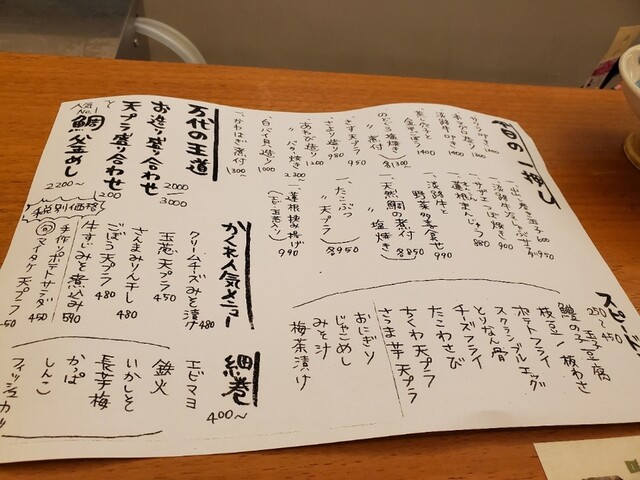 一、出し巻き玉子 600
一、淡路牛なんしゃぶサラダ 950
一、サザエつぼ焼き 900
一、蓮根まんじゅう 880
一、淡路牛と
野菜の炙合せ 990
一、天然鯛の煮付
〃 塩焼き 各850
一、たこぶつ
〃 天プラ 各950
一、蓮根挟み揚げ
990
のどぐろ塩焼き
各1300
一、きす天プラ 950
あわび造り 1200
〃 バタ焼き 2300
一、白バイ貝造り 1000
一、かわはぎ煮付 1300
万代の王道
お造り盛り合わせ 2000
天プラ盛り合わせ 3000
人気No.1
鯛釜めし
2200〜
税別価格
スピード
250〜450
玉子豆腐
鱧の子
枝豆/板わさ
ポテトフライ
スクランブルエッグ
とりなん骨
チーズフライ
たこわさび
ちくわ天プラ
さつま芋天プラ
おにぎり
じゃこめし
みそ汁
梅茶漬け
かくれ人気メニュー
クリームチーズみそ漬け 480
玉葱天プラ 450
さんまみりん干し 480
ごぼう天プラ 480
牛すじみそ煮込み 590
手作ポテトサラダ 450
マイタケ天プラ 450
細巻
400〜
エビマヨ
鉄火
いかしそ
長芋梅
かっぱ
しんこ
フィッシュカツ